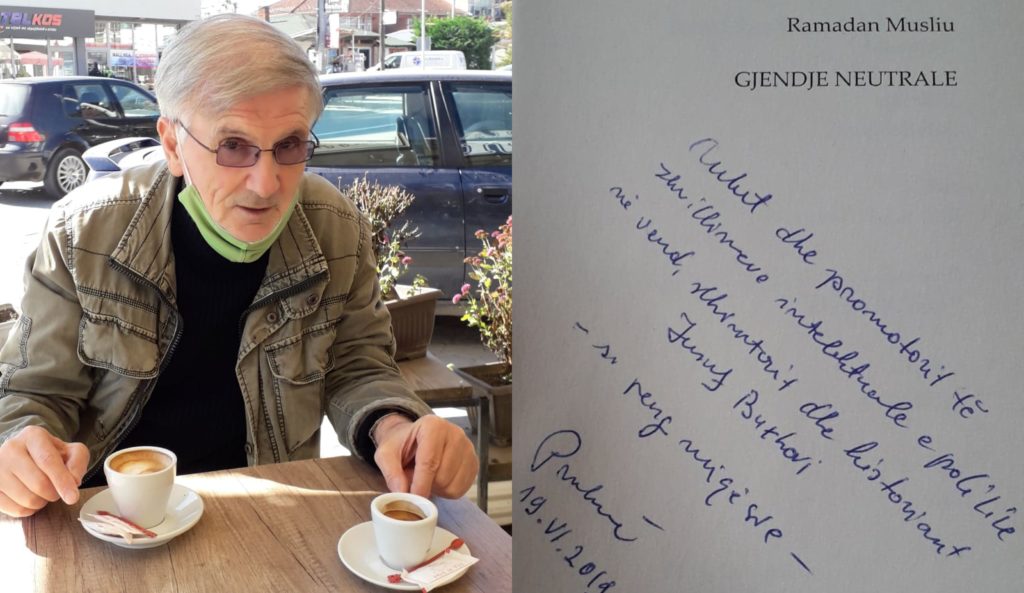 TALKOS
Ramadan Musliu
GJENDJE NEUTRALE
dhe promotorit të
zhvillimeve intelektuale e politike
në vend, shkrimtarit dhe historiant
Jusuf Buxhovi
– si peng miqësie –
19.VI.2019